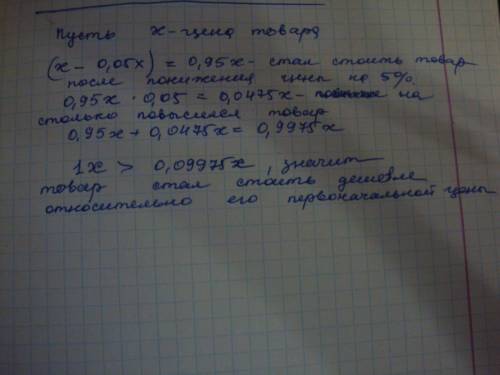 Пусть x - цена товара
(x - 0,05x) = 0,95x - стал стоить товар
после понижения цены на 5%.
0,95x · 0,05 = 0,0475x - на
столько повысился товар
0,95x + 0,0475x = 0,9975x
1x > 0,09975x, значит
товар стал стоить дешевле
относительно его первоначальной цены